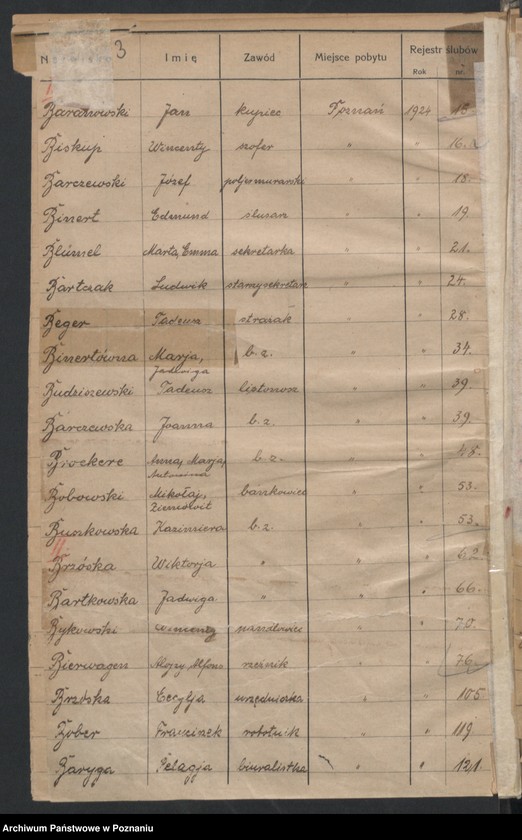 3
Nazwisko Imię Zawód Miejsce pobytu Rejestr ślubów
Rok nr.
Baranowski Jan kupiec Poznań 1924 15
Biskup Wincenty szofer " " 16.
Barczewski Józef " " 18.
Binert Edmund ślusarz " " 19
Blümel Marta, Emma sekretarka " " 21.
Bartczak Ludwik starszy sekretarz " " 24.
Beger Tadeusz strażak " " 28.
Binertówna Marja, b. z. " " 34.
Jadwiga
Budziszewski Tadeusz listonosz " " 39
Barczewska Joanna b. z. " " 39.
Anna, Marja, b. z. " " 48.
Antonina
Bobowski Mikołaj, bankowiec " " 53.
Ziemowit
Buszkowska Kazimiera b. z. " " 53.
Brzóska Wiktorja " " " 62
Bartkowska Jadwiga " " " 66.
Bykowski Wincenty handlowiec " " 70.
Bierwagen Alojzy, Alfons rzeźnik " " 76.
Brzóska Cecylja urzędniczka " " 105
Bober Franciszek robotnik " " 119.
Baryga Pelagja biuralistka " " 121.
Archiwum Państwowe w Poznaniu